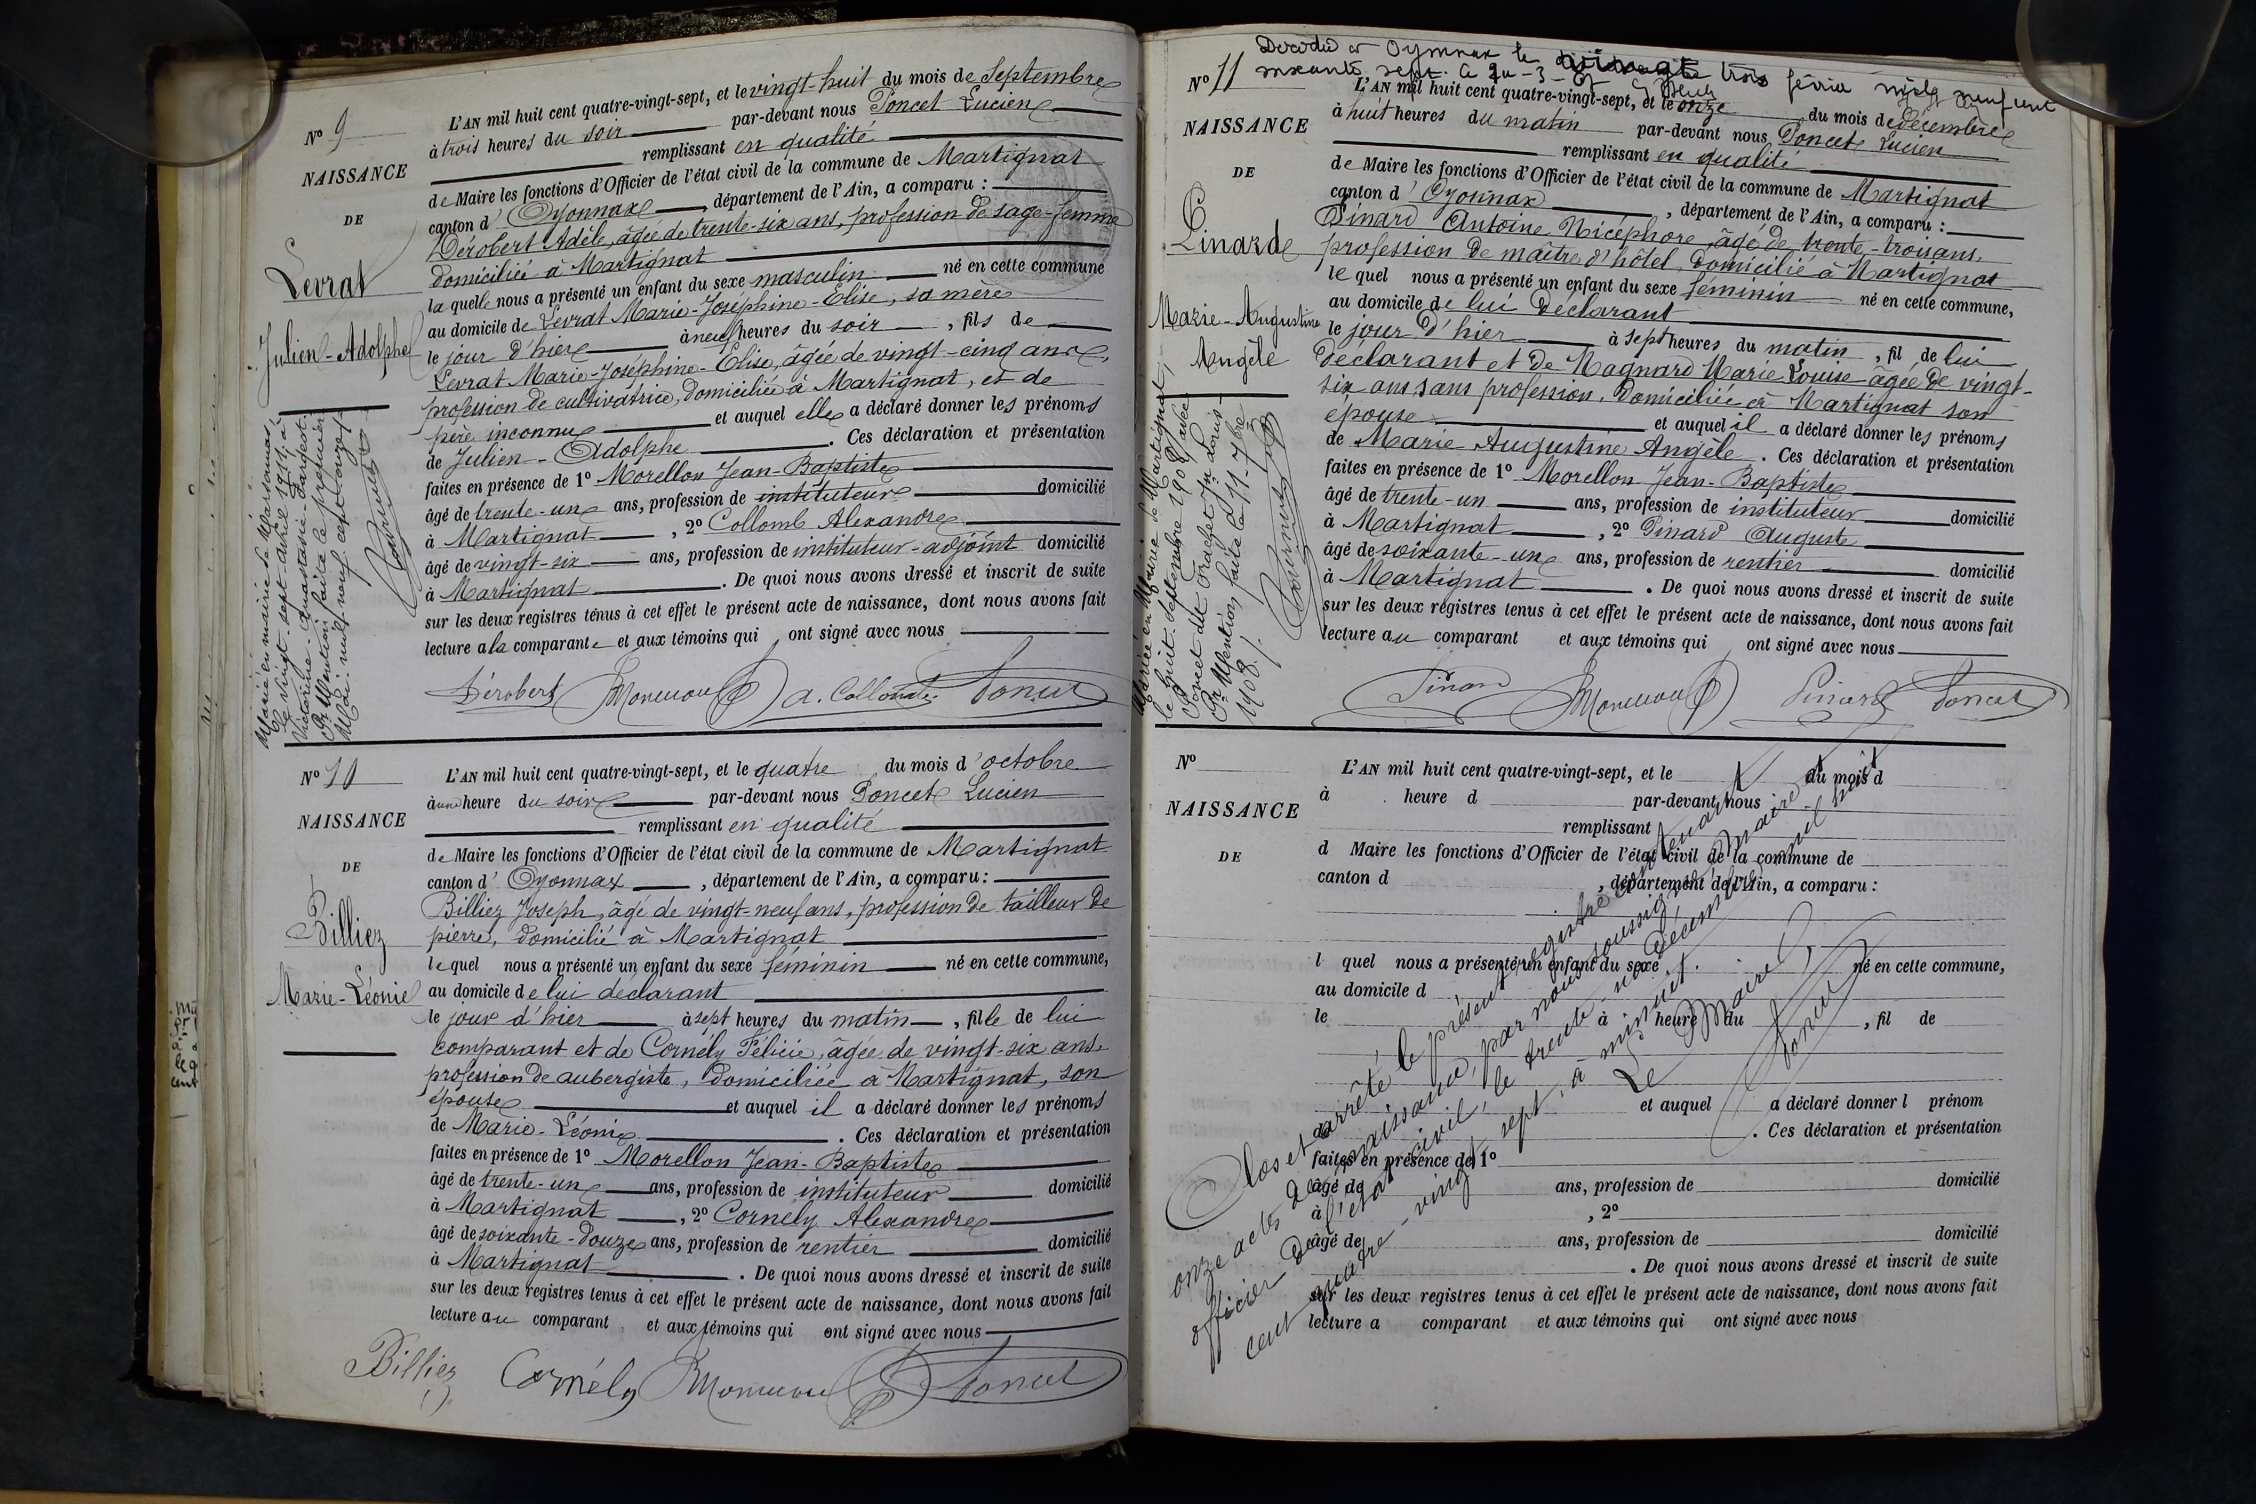 N° 9
NAISSANCE
DE
Levrat
Julien-Adolphe
L'AN mil huit cent quatre-vingt-sept, et le vingt-huit du mois de Septembre
à trois heures du soir par-devant nous Poncet Lucien
remplissant en qualité
de Maire les fonctions d'Officier de l'état civil de la commune de Martignat
canton d'Oyonnax, département de l'Ain, a comparu :
Dérobert Adèle, âgée de trente-six ans, profession de sage-femme
domiciliée à Martignat
la quelle nous a présenté un enfant du sexe masculin né en cette commune
au domicile de Levrat Marie-Joséphine-Elise, sa mère
le jour d'hier à neuf heures du soir, fils de
Levrat Marie-Joséphine-Elise, âgée de vingt-cinq ans,
profession de cultivatrice, domiciliée à Martignat, et de
père inconnu et auquel elle a déclaré donner les prénoms
de Julien-Adolphe. Ces déclaration et présentation
faites en présence de 1° Morellon Jean-Baptiste
âgé de trente-un ans, profession de instituteur domicilié
à Martignat, 2° Collomb Alexandre
âgé de vingt-six ans, profession de instituteur-adjoint domicilié
à Martignat. De quoi nous avons dressé et inscrit de suite
sur les deux registres tenus à cet effet le présent acte de naissance, dont nous avons fait
lecture a la comparante et aux témoins qui ont signé avec nous
Dérobert Morellon A. Collomb Poncet
Marié en mairie de
le vingt-sept avril 1911, à
Victorine
Pr Mention faite le premier
Mai mil neuf cent onze
N° 10
NAISSANCE
DE
Billiez
Marie-Léonie
L'AN mil huit cent quatre-vingt-sept, et le quatre du mois d'octobre
à une heure du soir par-devant nous Poncet Lucien
remplissant en qualité
de Maire les fonctions d'Officier de l'état civil de la commune de Martignat
canton d'Oyonnax, département de l'Ain, a comparu :
Billiez Joseph, âgé de vingt-neuf ans, profession de tailleur de
pierre, domicilié à Martignat
lequel nous a présenté un enfant du sexe féminin né en cette commune,
au domicile de lui déclarant
le jour d'hier à sept heures du matin, fille de lui
comparant et de Cornély Félicie, âgée de vingt-six ans,
profession de aubergiste, domiciliée à Martignat, son
épouse et auquel il a déclaré donner les prénoms
de Marie-Léonie. Ces déclaration et présentation
faites en présence de 1° Morellon Jean-Baptiste
âgé de trente-un ans, profession de instituteur domicilié
à Martignat, 2° Cornely Alexandre
âgé de soixante-douze ans, profession de rentier domicilié
à Martignat. De quoi nous avons dressé et inscrit de suite
sur les deux registres tenus à cet effet le présent acte de naissance, dont nous avons fait
lecture au comparant et aux témoins qui ont signé avec nous
Billiez Cornély Morellon Poncet
Décédée à Oyonnax le trois février mil neuf cent
soixante sept.
N° 11
NAISSANCE
DE
Pinard
Marie-Augustine
Angèle
L'AN mil huit cent quatre-vingt-sept, et le onze du mois de décembre
à huit heures du matin par-devant nous Poncet Lucien
remplissant en qualité
de Maire les fonctions d'Officier de l'état civil de la commune de Martignat
canton d'Oyonnax, département de l'Ain, a comparu :
Pinard Antoine Nicéphore, âgé de trente-trois ans,
profession de maître d'hôtel, domicilié à Martignat
le quel nous a présenté un enfant du sexe féminin né en cette commune,
au domicile de lui déclarant
le jour d'hier à sept heures du matin, fil de lui
déclarant et de Magnard Marie Louise âgée de vingt-
six ans sans profession, domiciliée à Martignat son
épouse et auquel il a déclaré donner les prénoms
de Marie Augustine Angèle. Ces déclaration et présentation
faites en présence de 1° Morellon Jean-Baptiste
âgé de trente-un ans, profession de instituteur domicilié
à Martignat, 2° Pinard Auguste
âgé de soixante-un ans, profession de rentier domicilié
à Martignat. De quoi nous avons dressé et inscrit de suite
sur les deux registres tenus à cet effet le présent acte de naissance, dont nous avons fait
lecture au comparant et aux témoins qui ont signé avec nous
Pinard Morellon Pinard Poncet
Mariée en Mairie de Martignat,
le huit septembre 1908, avec
Pr Mention faite le 11-7bre
1908./.
N°
NAISSANCE
DE
L'AN mil huit cent quatre-vingt-sept, et le du mois d
à heure d par-devant nous
remplissant
d Maire les fonctions d'Officier de l'état civil de la commune de
canton d , département de l'Ain, a comparu :
l quel nous a présenté un enfant du sexe né en cette commune,
au domicile d
le à heure du , fil de
et auquel a déclaré donner l prénom
de . Ces déclaration et présentation
faites en présence de 1°
âgé de ans, profession de domicilié
à , 2°
âgé de ans, profession de domicilié
. De quoi nous avons dressé et inscrit de suite
sur les deux registres tenus à cet effet le présent acte de naissance, dont nous avons fait
lecture a comparant et aux témoins qui ont signé avec nous
Clos et arrêté le présent registre contenant
onze actes de naissance, par nous soussigné, Maire et
officier de l'état civil, le trente-un décembre mil huit
cent quatre-vingt-sept, à minuit.
Le Maire,
Poncet